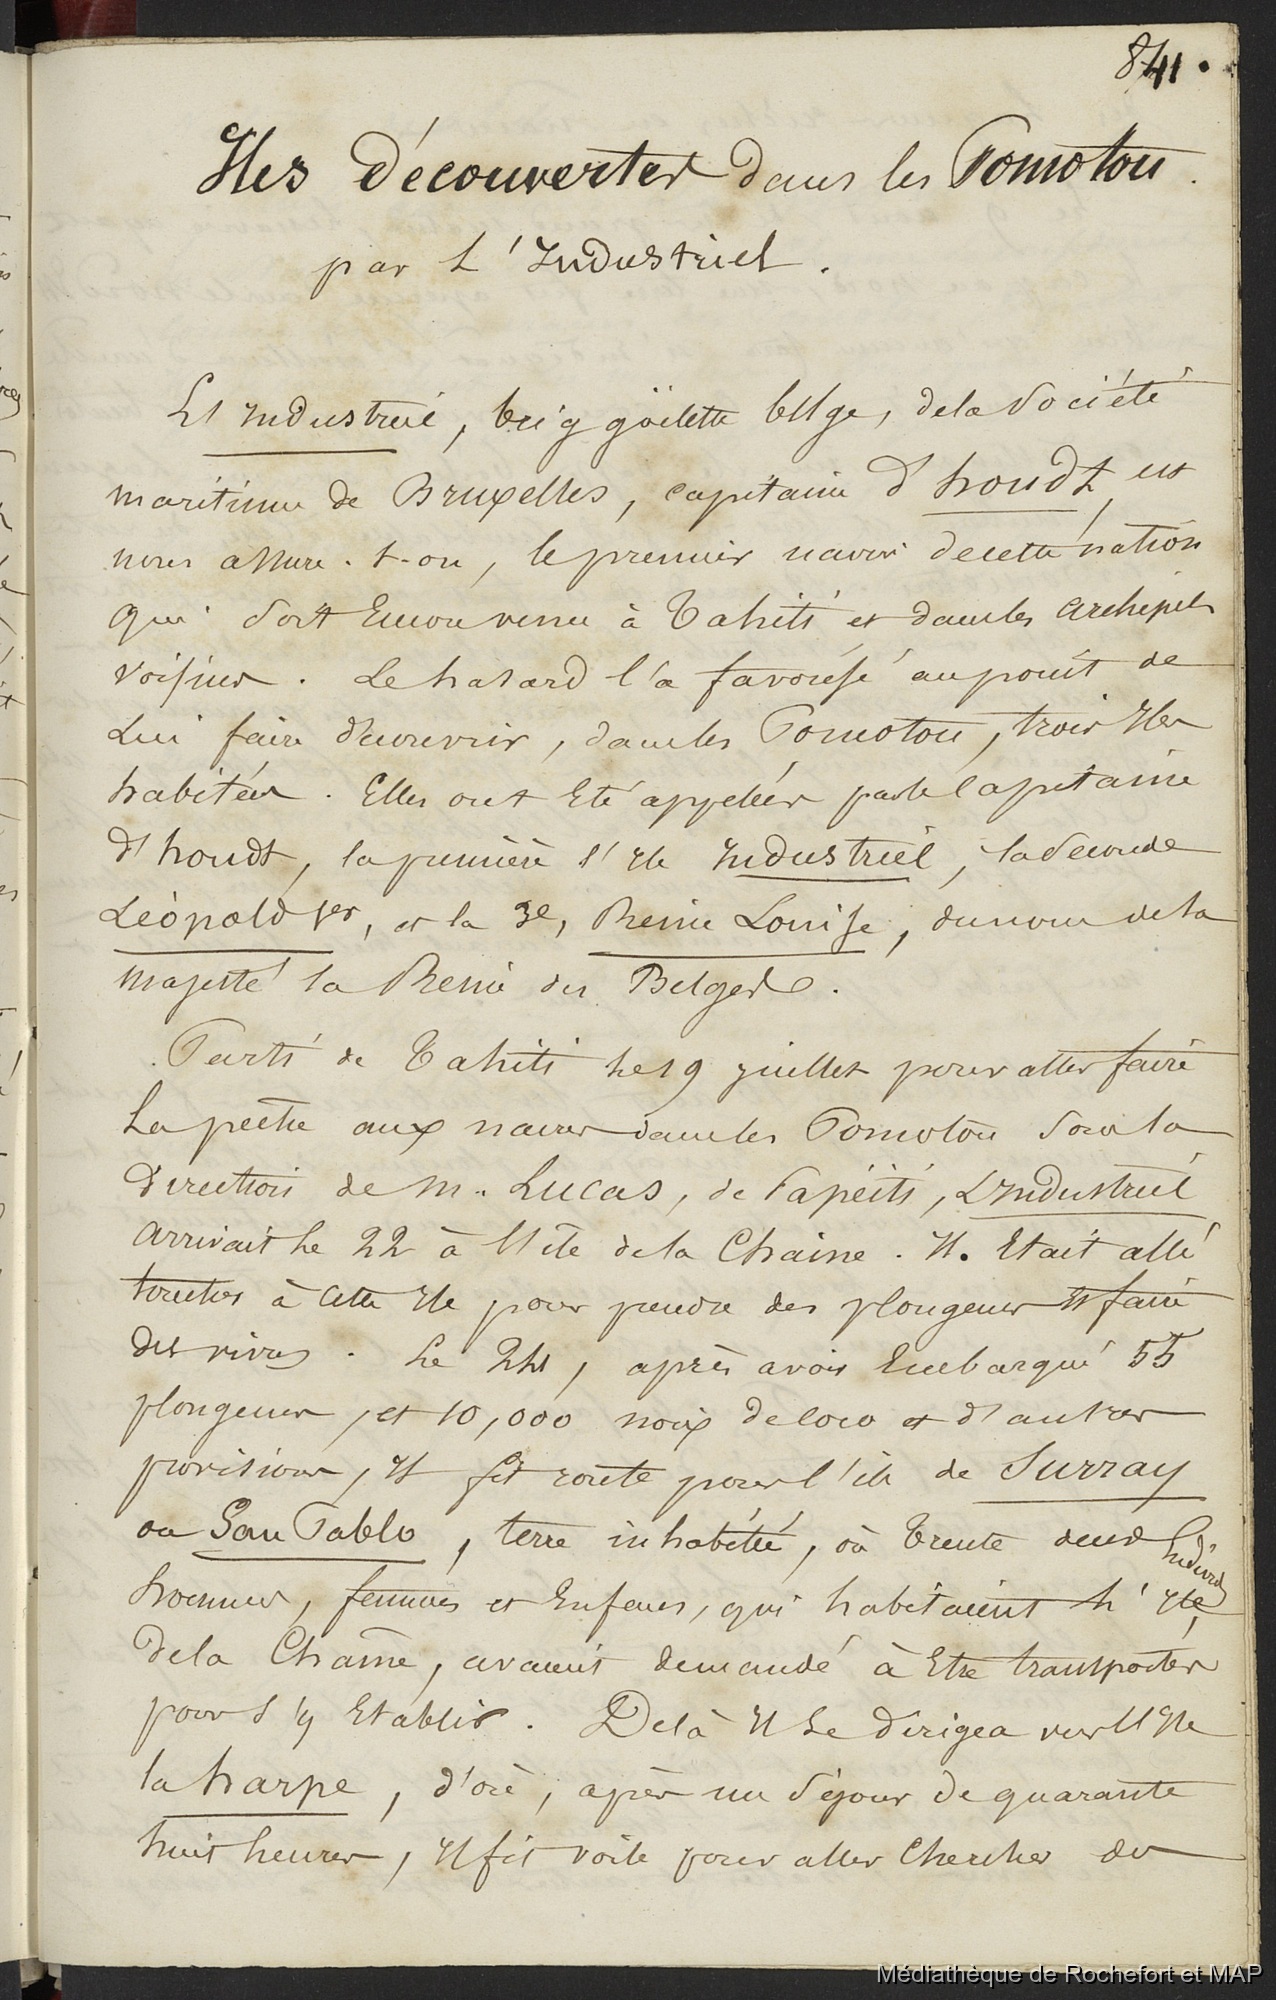 841.
Iles découvertes dans les Pomotou.
par L'Industriel.
L'Industriel, brig goëlette belge, de la Société
maritime de Bruxelles, capitaine d'houdt, est
nous assure-t-on, le premier navire de cette nation
qui soit encore venu à Tahiti et dans les archipels
voisins. Le hasard l'a favorisé au point de
Lui faire découvrir, dans les Pomotou, trois Iles
habitées. Elles ont été appelées par le Capitaine
d'houdt, la première l'Ile Industriel, la Seconde
Léopold 1er, et la 3e, Reine Louise, du nom de la
majesté la Reine des Belges.
Parti de Tahiti le 19 juillet pour aller faire
La pêche aux nacres dans les Pomotou sous la
direction de M. Lucas, de Papéïti, L'Industriel
arrivait le 22 à l'île de la Chaine. Il Etait allé
toucher à cette Ile pour prendre des plongeurs et faire
des vivres. Le 24, après avoir Embarqué 55
plongeurs, et 10,000 noix de coco et d'autres
provisions, Il fit route pour l'île de Surray
ou San Pablo, terre inhabitée, où trente deux Indiens
hommes, femmes et Enfans, qui habitaient l'Ile
de la Chaîne, avaient demandé à Etre transportés
pour s'y Etablir. De là Il se dirigea vers l'Ile
la harpe, d'où, après un séjour de quarante
huit heures, Il fit voile pour aller Chercher des
Médiathèque de Rochefort et MAP